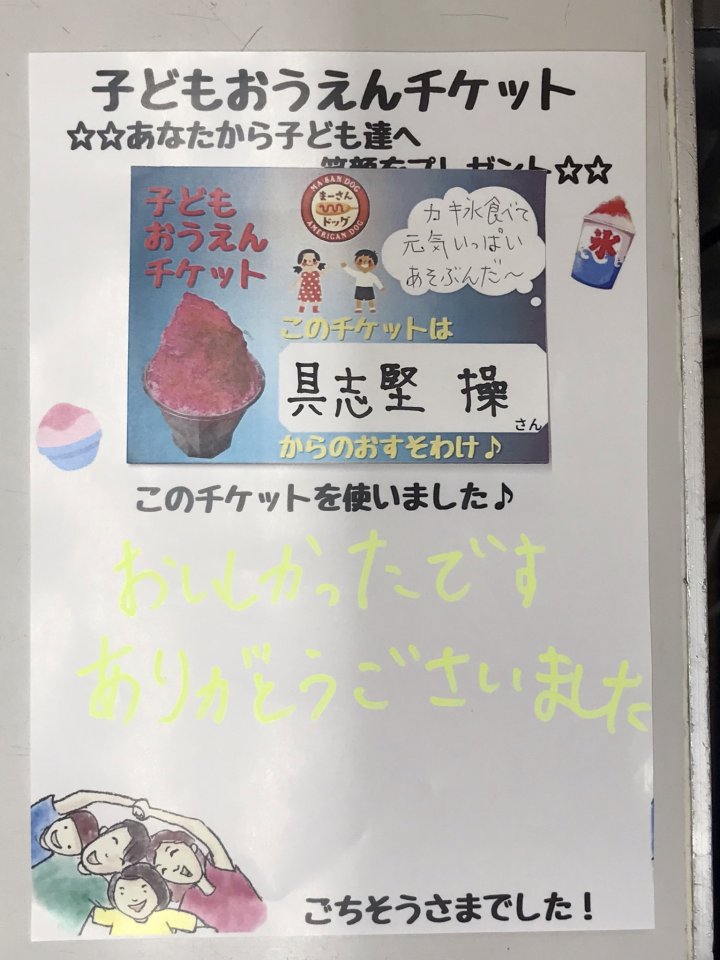 子どもおうえんチケット
☆☆あなたから子ども達へ
笑顔をプレゼント☆☆
子ども
おうえん
チケット
MA SAN DOG
まーさん
ドッグ
AMERICAN DOG
カキ氷食べて
元気いっぱい
あそぶんだ〜
氷
このチケットは
具志堅 操
さん
からのおすそわけ♪
このチケットを使いました♪
おいしかったです
ありがとうございました
ごちそうさまでした!